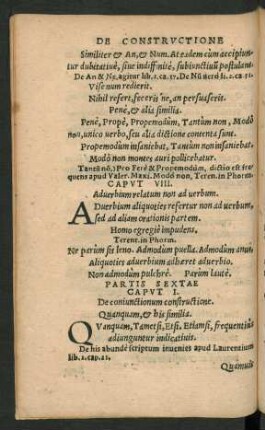 DE CONSTRVCTIONE
Similiter & An, & Num. At eodem cum accipiuntur
dubitatiuè, siue indefinitè, subiunctiuū postulant.
De An & Ne, agitur lib. 1. ca. 17. De Nū lib. 2. ca.
Vise num redierit.
Nihil refert, feceris ne, an persuaserit.
Penè, & alia similia.
Penè, Propè, Propemodùm, Tantùm non, Modò
non, vnico verbo, seu alia dictione contenta sunt.
Propemodùm insaniebat, Tantùm non insaniebat.
Modò non montes auri pollicebatur.
Tantū nō, Pro Ferè & Propemodùm, dictio est frequens
apud Valer. Maxi. Modò non, Teren. in Phorm.
CAPVT VIII.
Aduerbium relatum non ad verbum.
ADuerbium aliquoties refertur non ad verbum,
sed ad aliam orationis partem.
Homo egregiè impudens.
Terent. in Phorm.
parùm sis leno. Admodùm puella. Admodùm
Aliquoties aduerbium adhæret aduerbio.
Non admodùm pulchrè. Parùm lautè.
PARTIS SEXTAE
CAPVT I.
De coniunctionum constructione.
Quanquam, & his similia.
QVanquam, Tametsi, Etsi, Etiamsi, frequentiùs
adiunguntur indicatiuis.
De his abundè scriptum inuenies apud Laurentium
lib. 2. cap. 21.
Quamuis